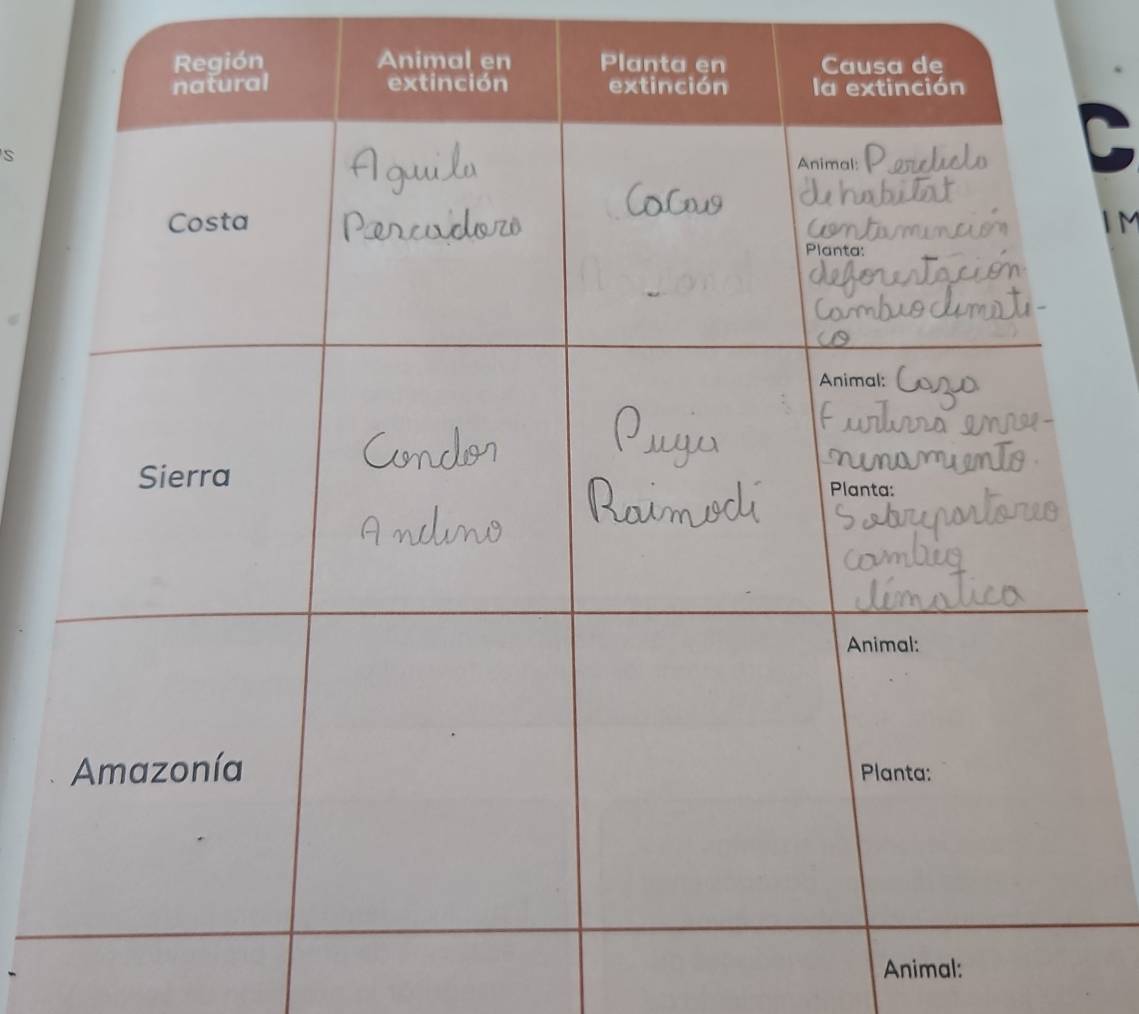 Región
natural
Animal en
extinción
Planta en
extinción
Causa de
la extinción
s
C
IM
Costa
Aguila
Percadora
Cacao
Animal: Perdida
de habitat
contaminción
Planta:
deforestación
cambio climati-
co
Sierra
Condor
Andino
Puya
Raimodi
Animal: Caza
Furtiva enve-
nenamiento.
Planta:
Sobrepastoreo
cambio
climatica
Amazonía
Animal:
Planta:
Animal: